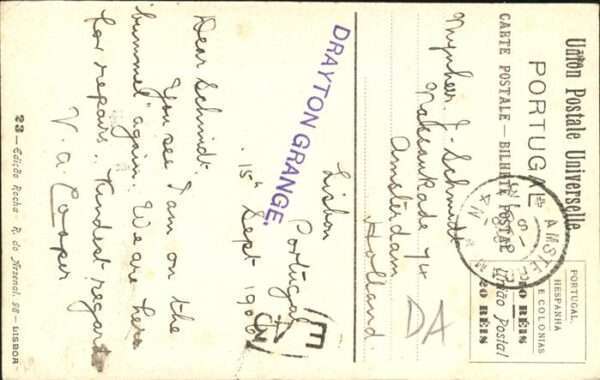 Union Postale Universelle
PORTUGAL
CARTE POSTALE — BILHETE POSTAL
PORTUGAL,
HESPANHA
E COLONIAS
10 RÉIS
União Postal
20 RÉIS
AMSTERDAM
Mynheer J. Schmidt
Amsterdam
Holland.
DA
DRAYTON GRANGE.
Lisbon
Portugal
15th Sept 1906
Dear Schmidt
You see I am on the
"bummel" again. We are here
for repairs. Kindest regards
V. A. Cooper
23 — Edição Rocha - R. do Arsenal, 96 — LISBOA